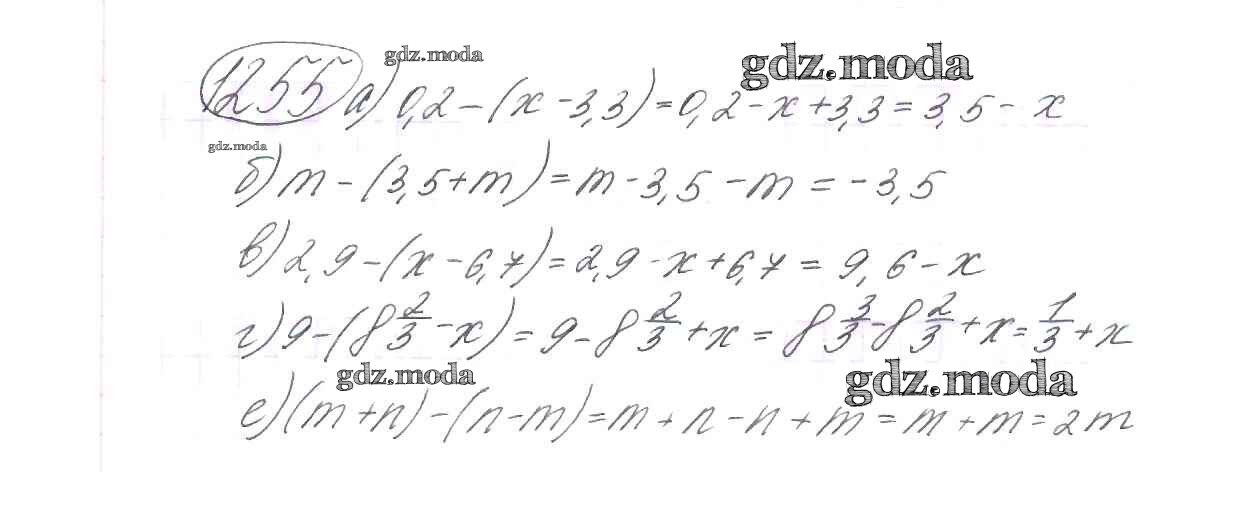 gdz.moda
gdz.moda
1255 а) 0,2 - (x - 3,3) = 0,2 - x + 3,3 = 3,5 - x
gdz.moda
б) m - (3,5 + m) = m - 3,5 - m = -3,5
в) 2,9 - (x - 6,7) = 2,9 - x + 6,7 = 9,6 - x
г) 9 - (8 2/3 - x) = 9 - 8 2/3 + x = 8 3/3 - 8 2/3 + x = 1/3 + x
gdz.moda
gdz.moda
е) (m + n) - (n - m) = m + n - n + m = m + m = 2m